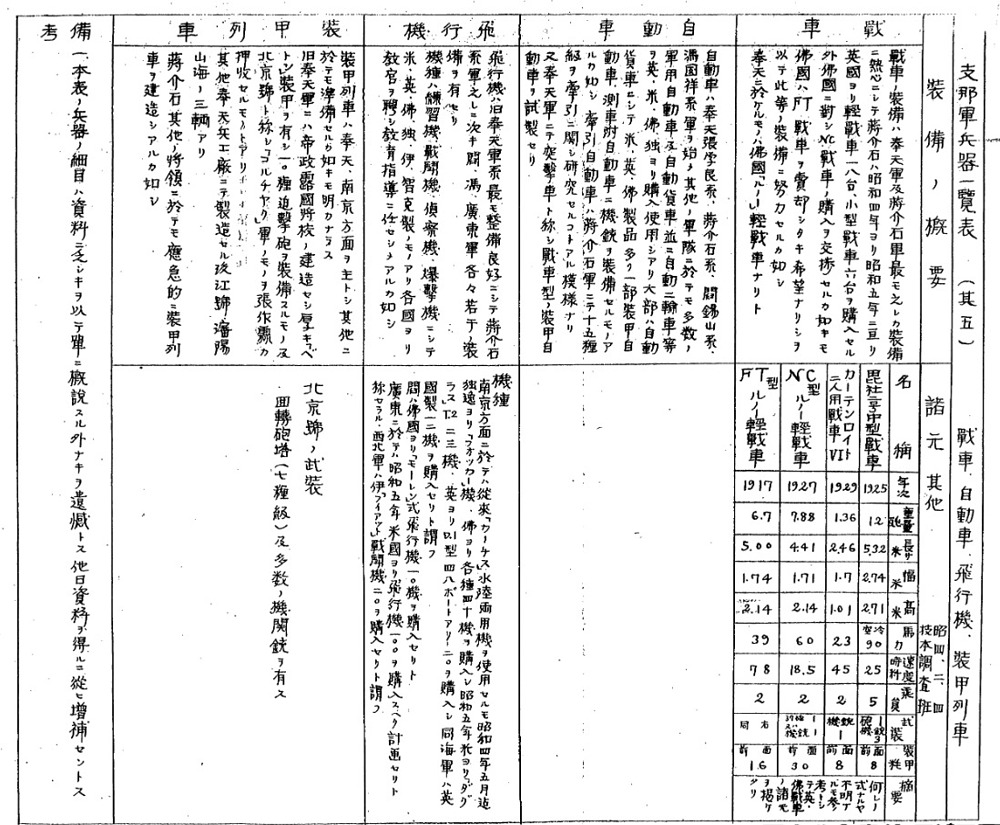 支那軍兵器一覧表(其五) 戰車、自動車、飛行機、裝甲列車
昭四、二、四
技本調査班
裝備ノ概要
諸元其他
戰車
戰車ノ裝備ハ奉天軍及蔣介石軍最モ之レカ裝備
ニ熱心ニシテ蔣介石ハ昭和四年ヨリ昭和五年ニ亘リ
英國ヨリ輕戰車一八台、小型戰車六台ヲ購入セル
外佛國ニ對シNC戰車ノ購入ヲ交渉セルカ如キモ
佛國ハFT戰車ヲ賣却シタキ希望ナリシヲ
以テ此等ノ裝備ニ努力セルカ如シ
奉天ニ於ケルモノハ佛國「ルノー」輕戰車ナリト
名稱
年次
重量 瓲
長サ 米
幅 米
高 米
馬力
速度 時粁
乘員
武裝
裝甲 粍
摘要
毘社亨中型戰車
1925
12
5.32
2.74
2.71
空冷 90
25
5
砲1 機銃3
前面 8
カーデンロイト二人用戰車VI
1929
1.36
2.46
1.7
1.01
23
45
2
機銃1
前面 8
NC型ルノー輕戰車
1927
7.88
4.41
1.71
2.14
60
18.5
2
前面 30
FT型ルノー輕戰車
1917
6.7
5.00
1.74
2.14
39
78
2
右同
前面 16
何レノ
式ナルヤ
不明ナ
ルモ參
考トシ
テ英、
佛戰車
ノ諸元
ヲ掲ケ
タリ
自動車
自動車ハ奉天張学良系、蔣介石系、閻錫山系、
馮國祥系軍ヲ始メ其他ノ軍隊ニ於テモ多數ノ
軍用自動車及自動貨車並ニ自動二輪車等
ヲ英、米、佛、独ヨリ購入使用シアリ大部ハ自動
貨車ニシテ米、英、佛製品多ク一部裝甲自
動車、測車附自動車ニ機銃ヲ裝備セルモノア
ルカ如シ牽引自動車ハ蔣介石軍ニテ十五糎
級ヲ牽引ニ関シ研究セルコトアル模様ナリ
又奉天軍ニテ突擊車ト称シ戰車型ノ裝甲自
動車ヲ試製セリ
飛行機
飛行機ハ旧奉天軍系最モ整備良好ニシテ蔣介石
系軍之レニ次キ閻、馮、廣東軍各々若干ノ裝
備ヲ有セリ
機種ハ練習機、戰闘機、偵察機、爆擊機ニシテ
米、英、佛、独、伊、智克製ノモノアリ各國ヨリ
敎官ヲ聘シ敎育指導ニ任セシメアルカ如シ
機種
南京方面ニ於テハ從來「カーチス」水陸両用機ヲ使用セルモ昭和四年五月迄
独逸ヨリ「フオッカー」機、佛ヨリ各種四十機ヲ購入シ昭和五年米ヨリ「ダグ
ラス」T.2二三機、英ヨリ□型四八ポートアリ二〇ヲ購入シ同海軍ハ英
國製一二機ヲ購入セリト謂フ
閻ハ佛國ヨリ「モーレン」式飛行機一〇機ヲ購入セリト
廣東ニ於テハ昭和五年米國ヨリ飛行機一〇〇ヲ購入スヘク計画セリト
称セラル、西北軍ハ伊「フイアット」戰闘機二〇ヲ購入セリト謂フ
裝甲列車
裝甲列車ハ奉天、南京方面ヲ主トシ其他ニ
於テモ準備セルカ如キモ明カナラス
旧奉天軍ニハ帝政露國將校ノ建造セシ厚キ「ベ
トン」裝甲ヲ有シ一〇糎迫擊砲ヲ裝備スルモノ及
北京號ト称シ「コルチャク」軍ノモノヲ張作霖カ
押收セルモノアリ
其他奉天兵工廠ニテ製造セル玖江號、瀋陽
山海ノ三輌アリ
蔣介石其他ノ將領ニ於テモ應急的ニ裝甲列
車ヲ建造シアルカ如シ
北京號ノ武裝
回轉砲塔(七糎級)及多數ノ機関銃ヲ有ス
備考
一、本表ノ兵器ノ細目ハ資料ニ乏シキヲ以テ單ニ概說スル外ナキヲ遺憾トス他日資料ヲ得ルニ從ヒ增補セントス